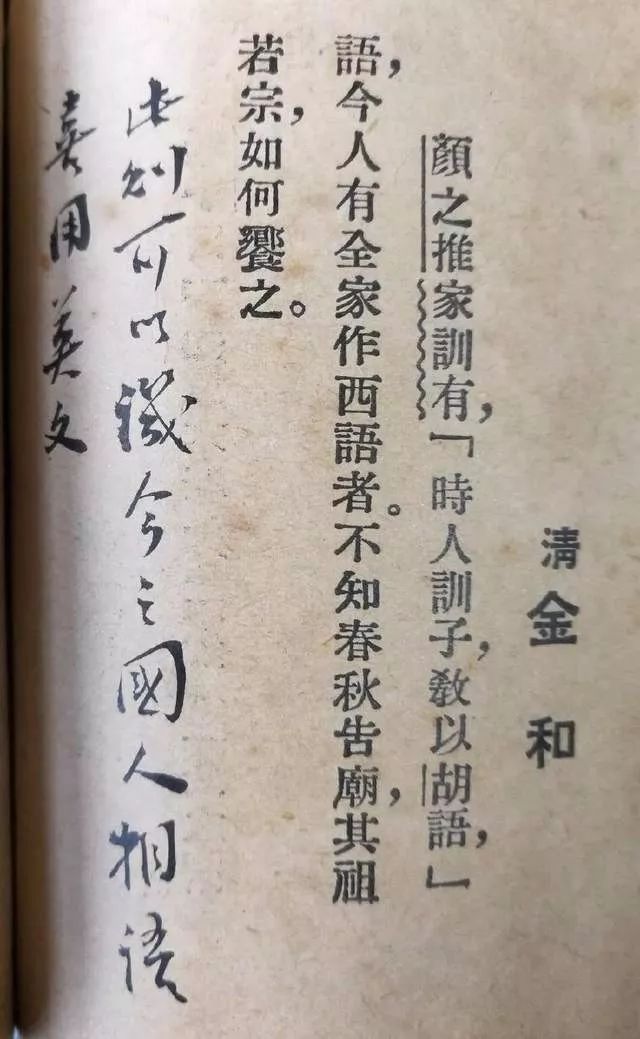 清金和
顏之推家訓有,「時人訓子,敎以胡語,」
語,今人有全家作西語者。不知春秋告廟,其祖
若宗,如何饗之。
此則可以譏今之國人相語
喜用英文